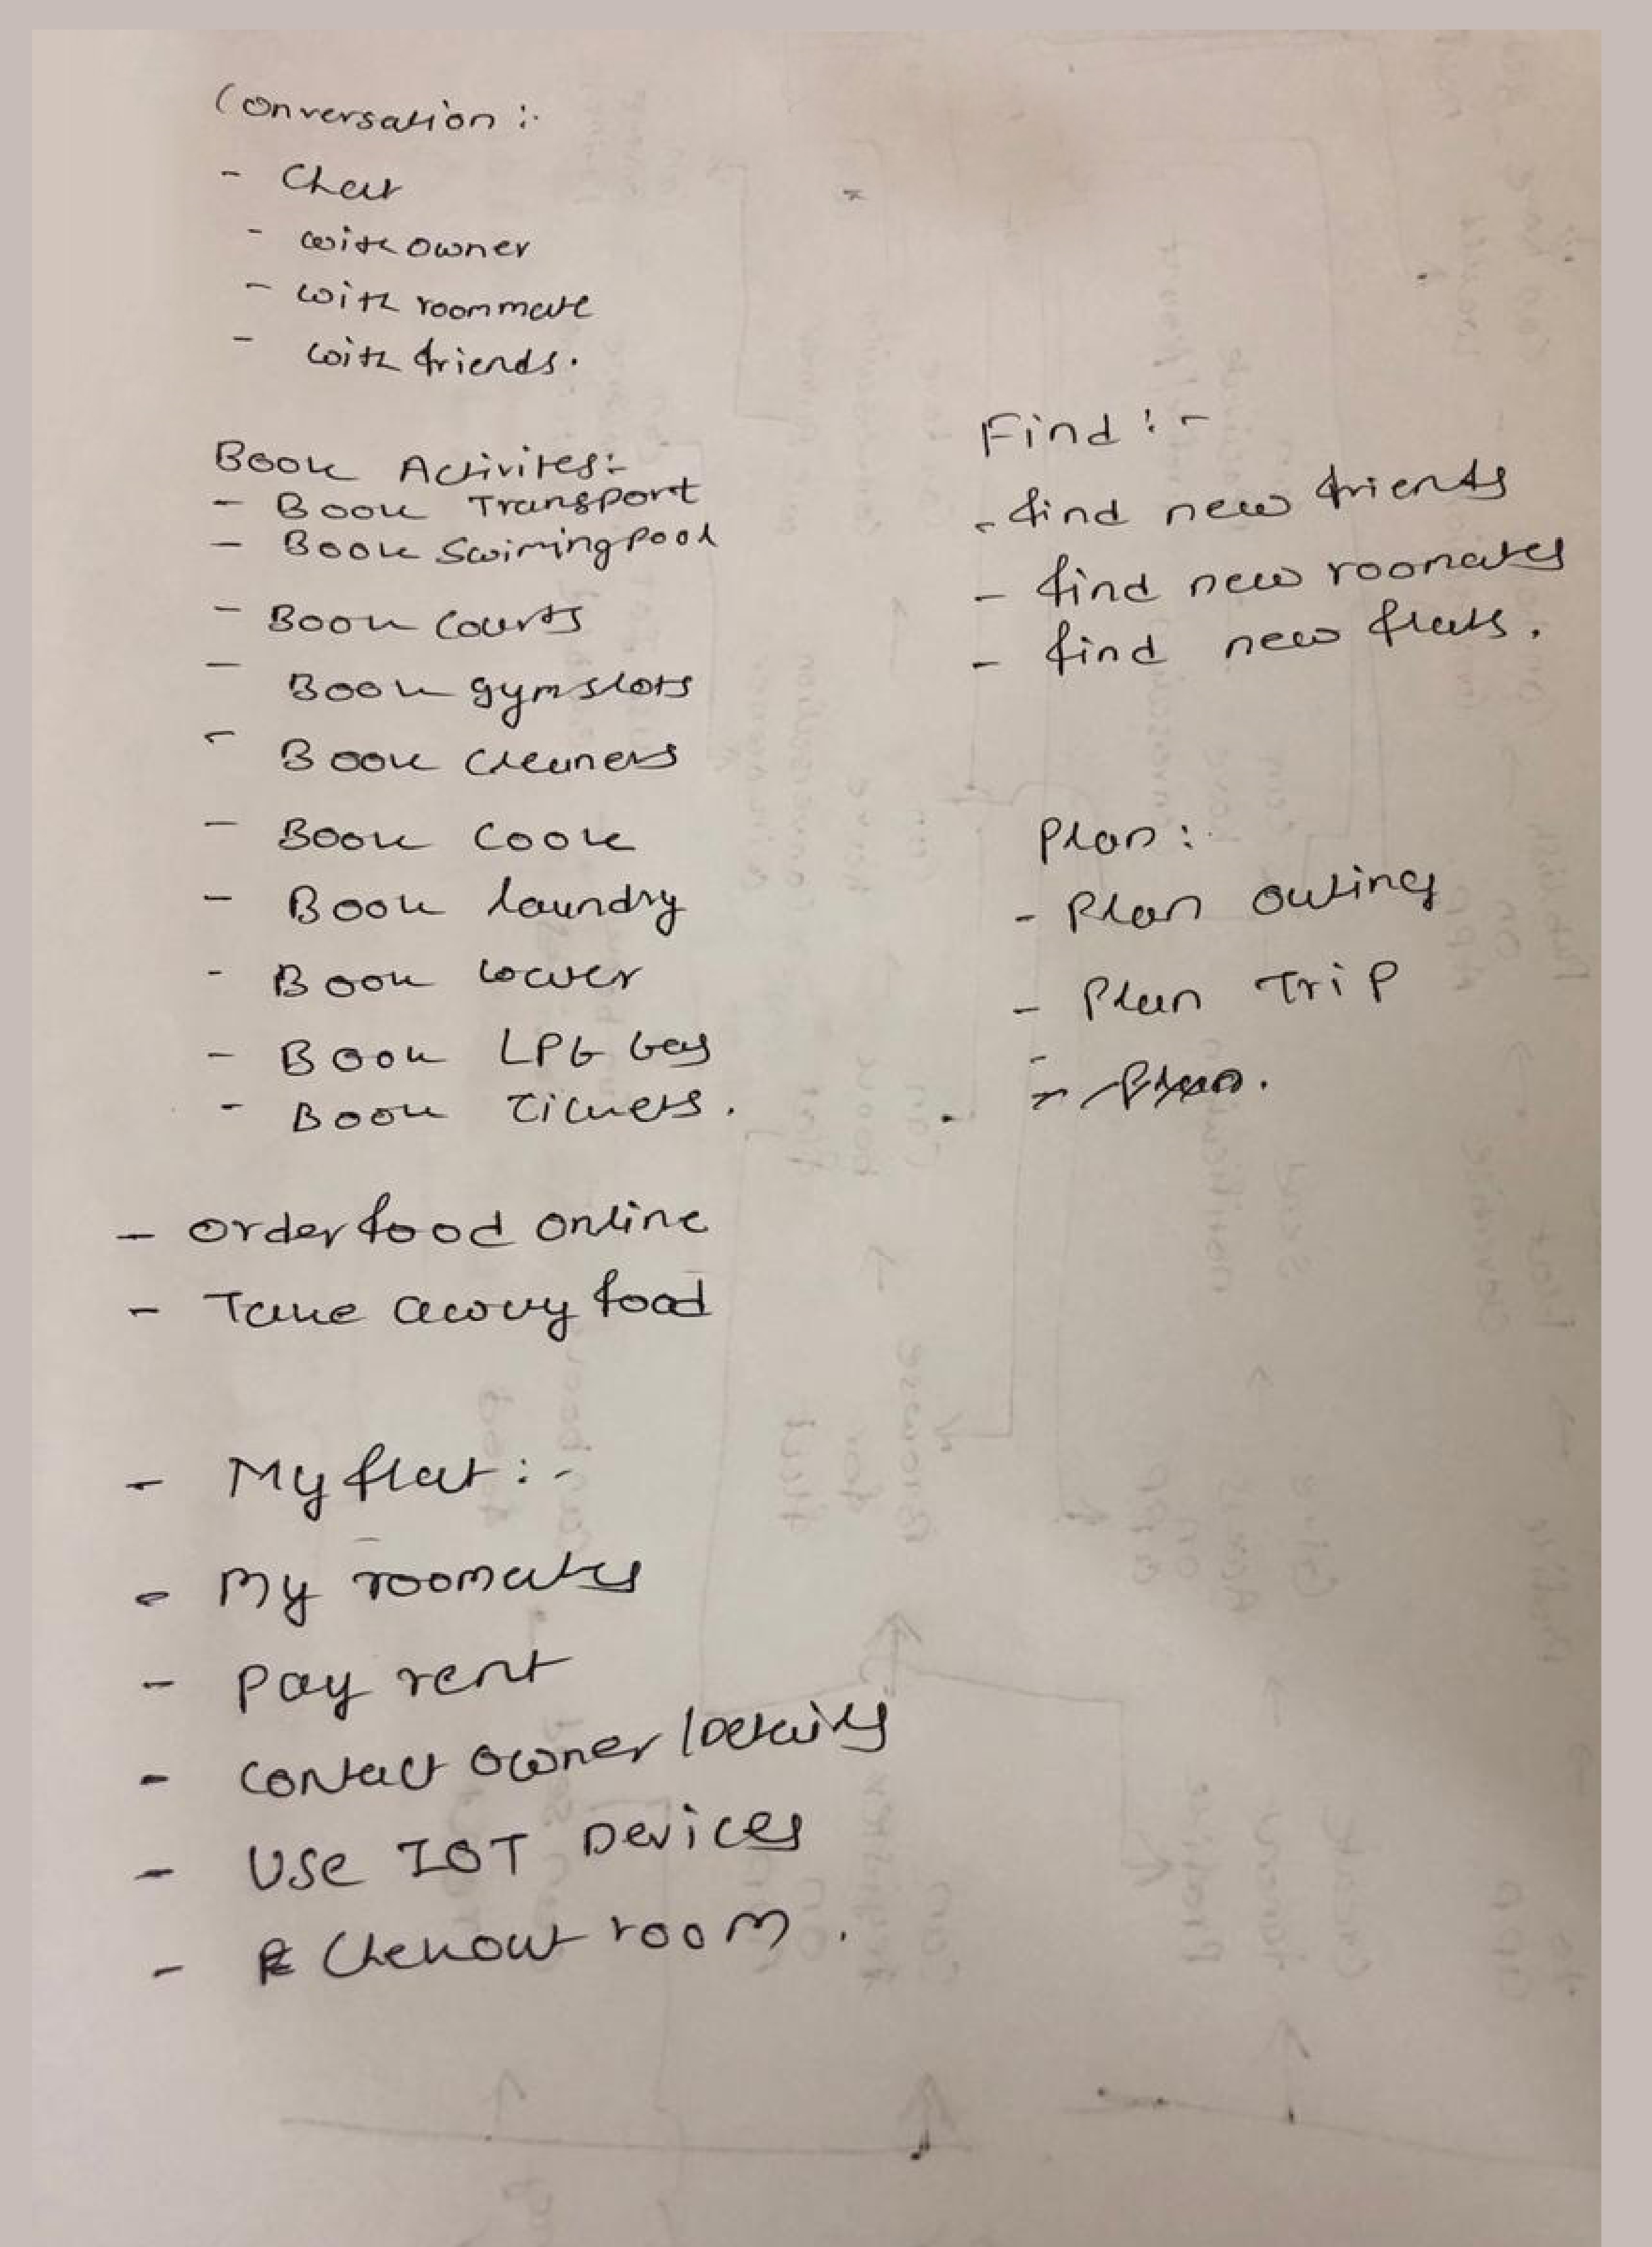 Conversation :-
- Chat
- with owner
- with roommate
- with friends.
Book Activites:-
- Book Transport
- Book Swimingpool
- Book Courts
- Book gym slots
- Book cleaners
- Book Cook
- Book laundry
- Book water
- Book LPG Gas
- Book Tickets.
- Order food online
- Take away food
- My flat :-
- My roomates
- Pay rent
- Contact owner / Details
- Use IOT Devices
- Checkout room.
Find :-
- find new friends
- find new roomates
- find new flats.
Plan :-
- Plan outing
- Plan Trip